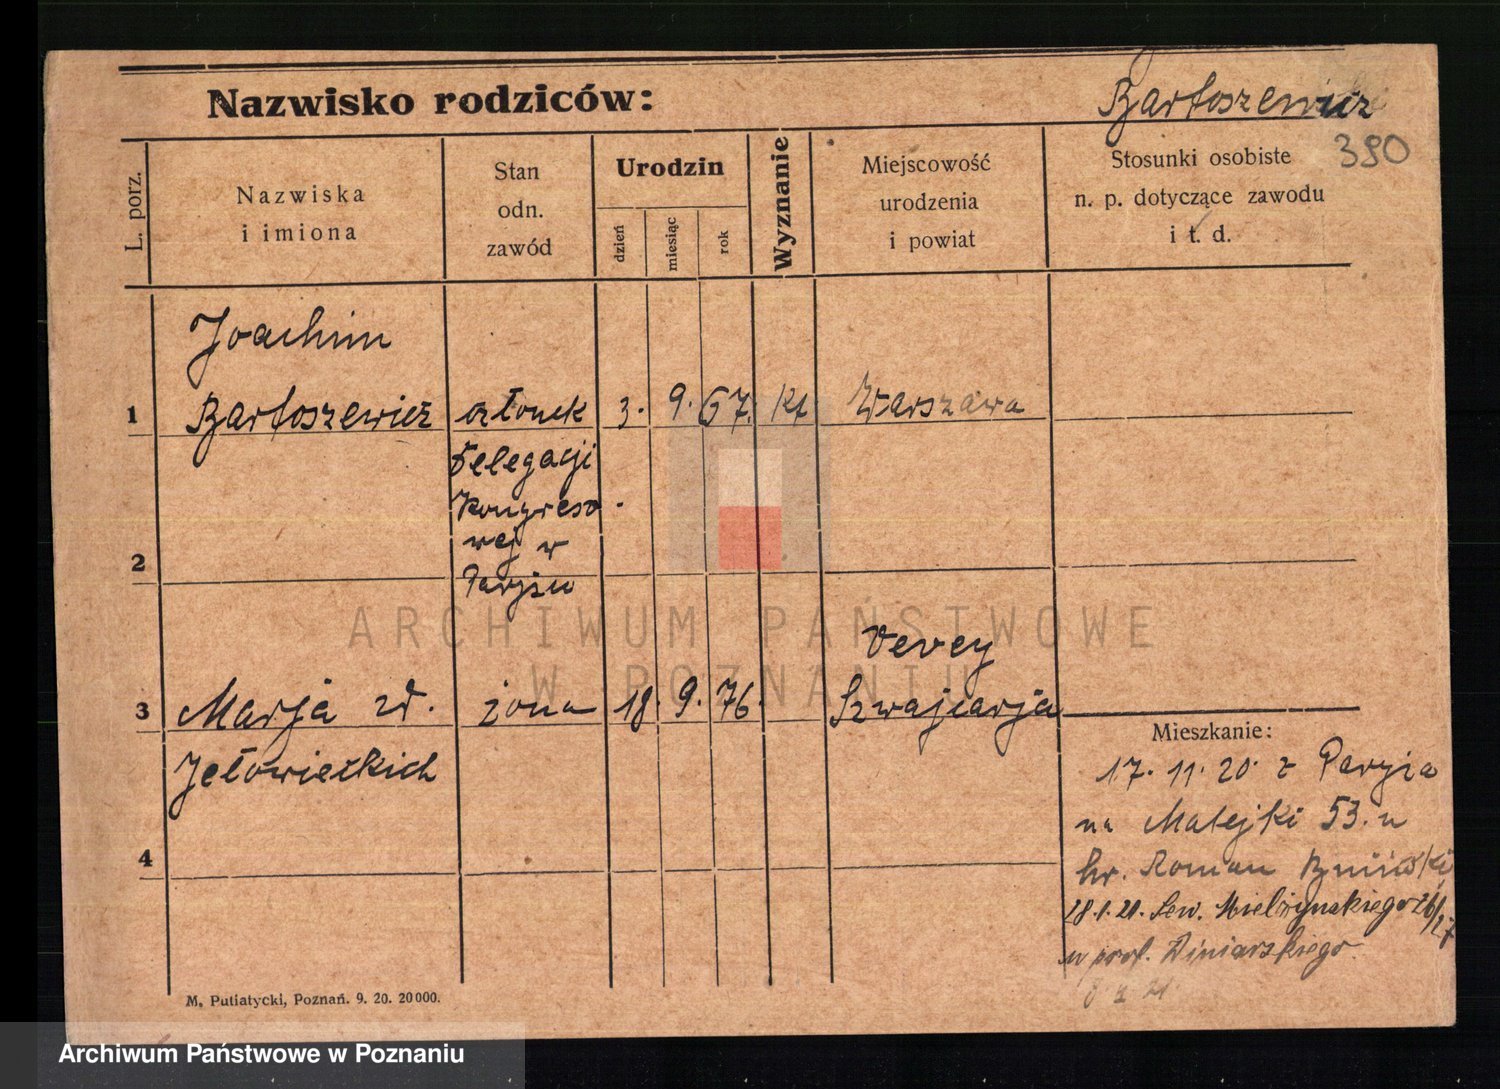 Nazwisko rodziców:
Bartoszewicz
390
L. porz.
Nazwiska
i imiona
Stan
odn.
zawód
Urodzin
dzień
miesiąc
rok
Wyznanie
Miejscowość
urodzenia
i powiat
Stosunki osobiste
n. p. dotyczące zawodu
i t. d.
Joachim
1 Bartoszewicz członek 3. 9. 67. kt Warszawa
Delegacji
Kongreso
wej w
2
Paryżu
Vevey
3 Marja zd. żona 18. 9. 76. Szwajcarja
Jełowieckich
4
Mieszkanie:
17. 11. 20. z Paryża
na Matejki 53. u
hr. Roman Bniński
28.1.21. Sew. Mielżyńskiego 26/27
u prof. Winiarskiego.
M. Putiatycki, Poznań. 9. 20. 20000.
ARCHIWUM PAŃSTWOWE
W POZNANIU
Archiwum Państwowe w Poznaniu